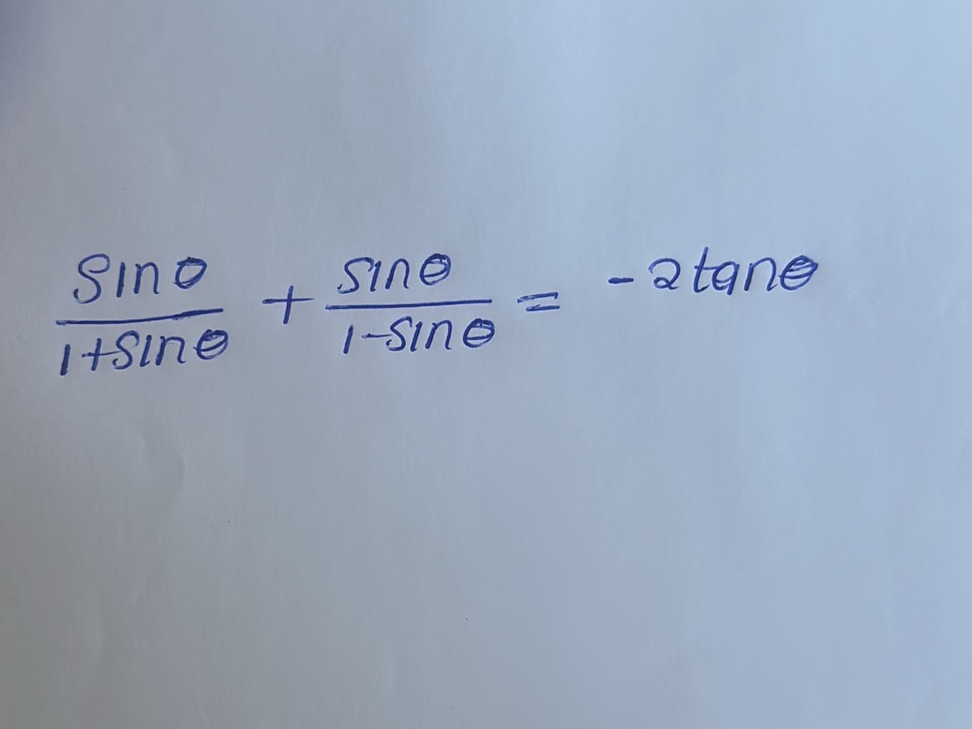 sinθ/(1+sinθ) + sinθ/(1-sinθ) = -2tanθ